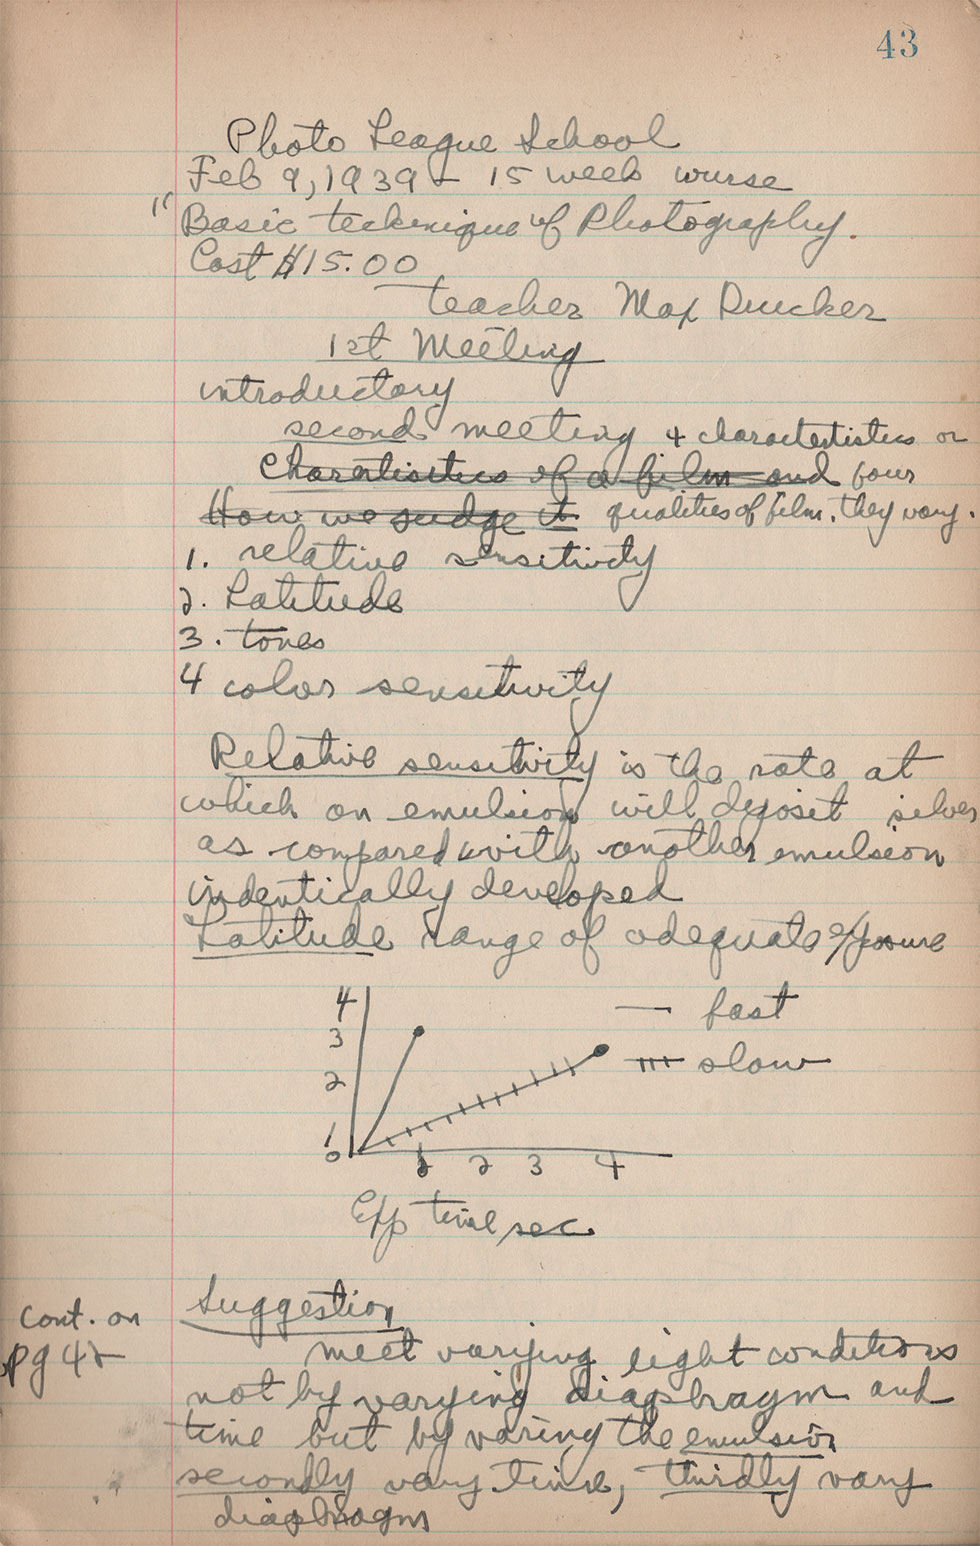 43
Photo League School
Feb 9, 1939 - 15 week course
"Basic technique of Photography.
Cost $15.00
teacher Max Drucker
1st Meeting
introductory
second meeting 4 charactertistics or
Charatisitics of a film and four
How we judge it qualities of film. they vary.
1. relative sensitivity
2. Latitude
3. tones
4 color sensitivity
Relative sensitivity is the rate at
which an emulsion will deposit silver
as compared with another emulsion
indentically developed
Latitude range of adequate exposure
4 — fast
3
2 slow
1
0 1 2 3 4
Exp time sec.
Suggestion
cont. on
pg 42
meet varying light conditions
not by varying diaphragm and
time but by varing the emulsion
secondly vary time, thirdly vary
diaphragm